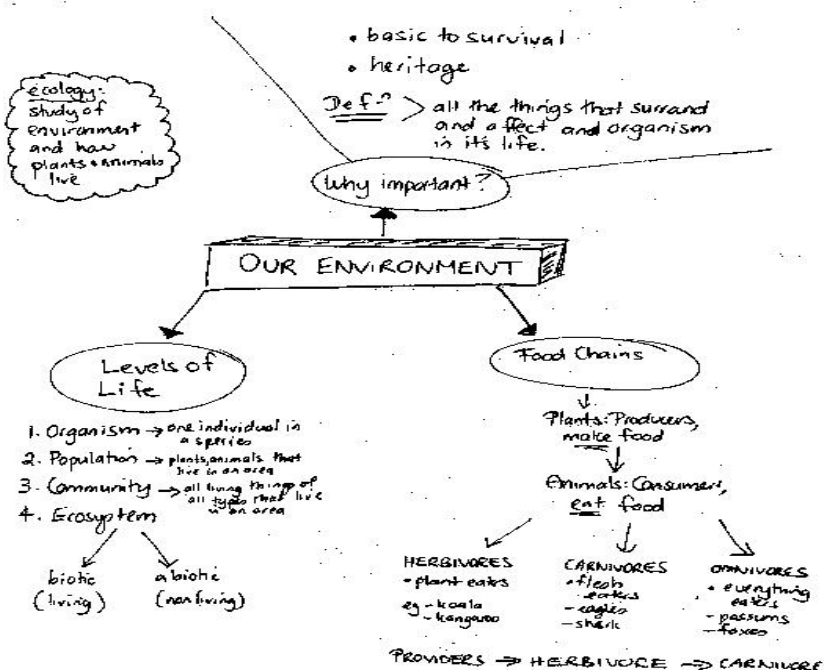 • basic to survival
• heritage
Def-n > all the things that surrand
and affect and organism
in it's life.
ecology:
study of
environment
and how
plants + animals
live
Why important?
OUR ENVIRONMENT
Levels of
Life
1. Organism → one individual in
a species
2. Population → plants, animals that
live in an area
3. Community → all living things of
all types that live
in an area
4. Ecosystem
biotic
(living)
abiotic
(nonliving)
Food Chains
Plants: Producers,
make food
Animals: Consumers,
eat food
HERBIVORES
• plant eaters
eg - koala
- kangaroo
CARNIVORES
• flesh
eaters
- eagles
- shark
OMNIVORES
• everything
eaters
- possums
- foxes
PROVIDERS → HERBIVORE → CARNIVORE